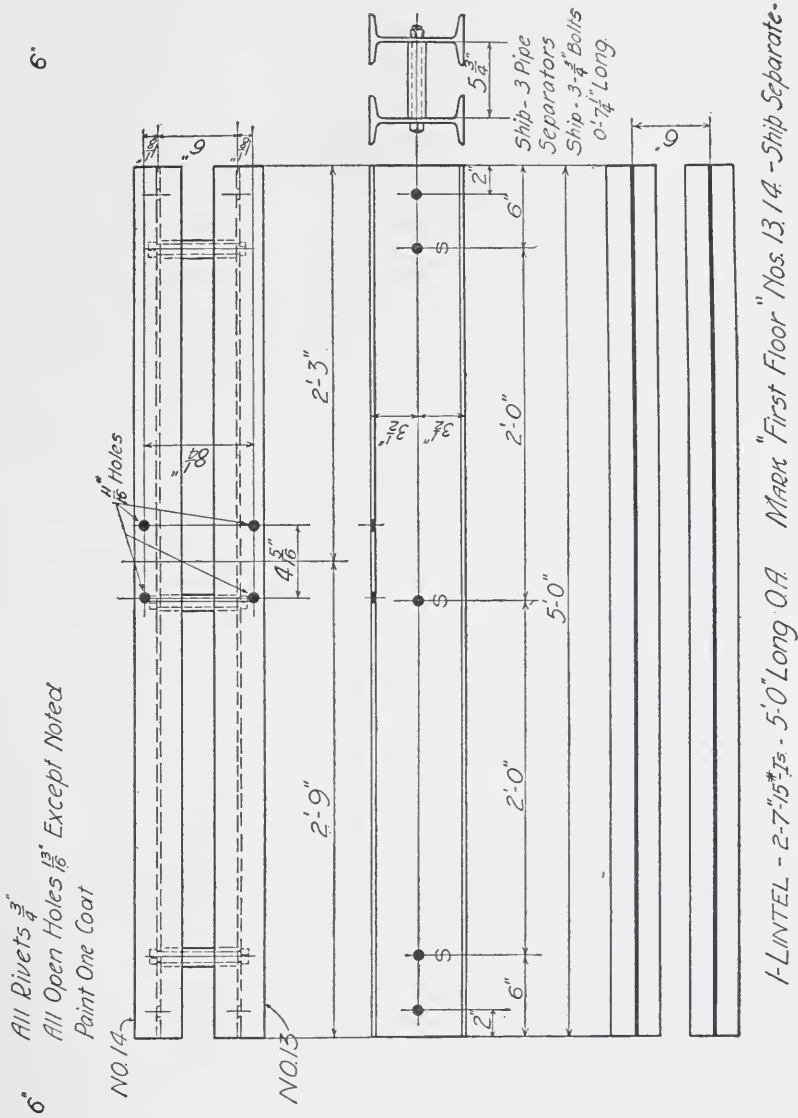 6"
6"
All Rivets 3/4"
All Open Holes 13/16" Except Noted
Paint One Coat
NO.14
NO.13
11/16" Holes
1 1/8"
6"
1 1/8"
8 1/4"
4 5/16"
2'-9"
2'-3"
5 3/4"
Ship-3 Pipe
Separators
Ship-3-3/4" Bolts
0'-7 1/4" Long.
3 1/2"
3 1/2"
S
S
S
2"
6"
2'-0"
2'-0"
6"
2"
5'-0"
6"
1-LINTEL - 2-7"-15# Is. - 5'-0" Long O.A. MARK "First Floor" Nos. 13,14. - Ship Separate-